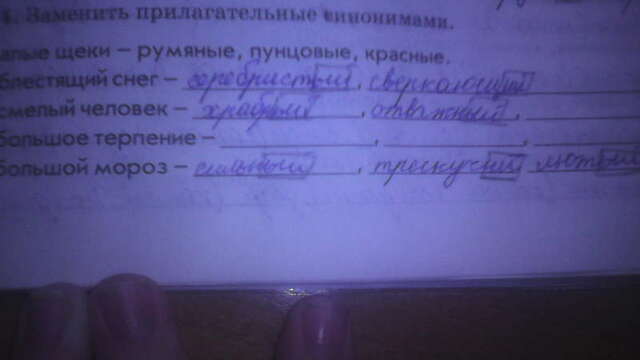 1. Заменить прилагательные синонимами.
алые щеки – румяные, пунцовые, красные.
блестящий снег – серебристый, сверкающий
смелый человек – храбрый, отважный,
большое терпение –
большой мороз – сильный, трескучий лютый